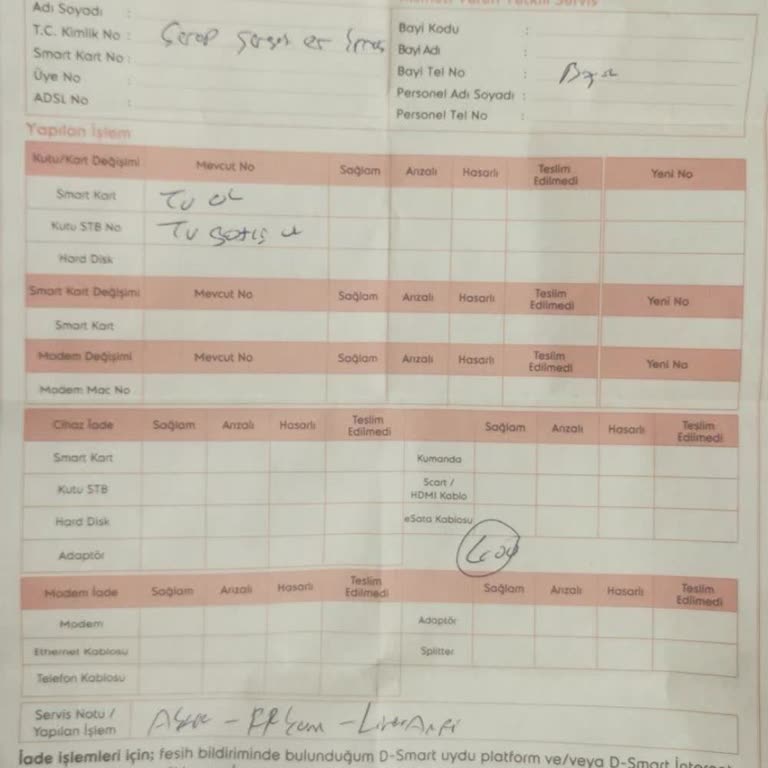 Adı Soyadı :
T.C. Kimlik No :
Smart Kart No :
Üye No :
ADSL No :
Yetkili Servis
Bayi Kodu :
Bayi Adı :
Bayi Tel No :
Personel Adı Soyadı :
Personel Tel No :
Yapılan İşlem
Kutu/Kart Değişimi Mevcut No Sağlam Arızalı Hasarlı Teslim Edilmedi Yeni No
Smart Kart
Kutu STB No TV
Hard Disk
Smart Kart Değişimi Mevcut No Sağlam Arızalı Hasarlı Teslim Edilmedi Yeni No
Smart Kart
Modem Değişimi Mevcut No Sağlam Arızalı Hasarlı Teslim Edilmedi Yeni No
Modem Mac No
Cihaz İade Sağlam Arızalı Hasarlı Teslim Edilmedi Sağlam Arızalı Hasarlı Teslim Edilmedi
Smart Kart Kumanda
Kutu STB Scart / HDMI Kablo
Hard Disk eSata Kablosu
Adaptör
Modem İade Sağlam Arızalı Hasarlı Teslim Edilmedi Sağlam Arızalı Hasarlı Teslim Edilmedi
Modem Adaptör
Ethernet Kablosu Splitter
Telefon Kablosu
Servis Notu / Yapılan İşlem
İade işlemleri için; fesih bildiriminde bulunduğum D-Smart uydu platform ve/veya D-Smart İnternet